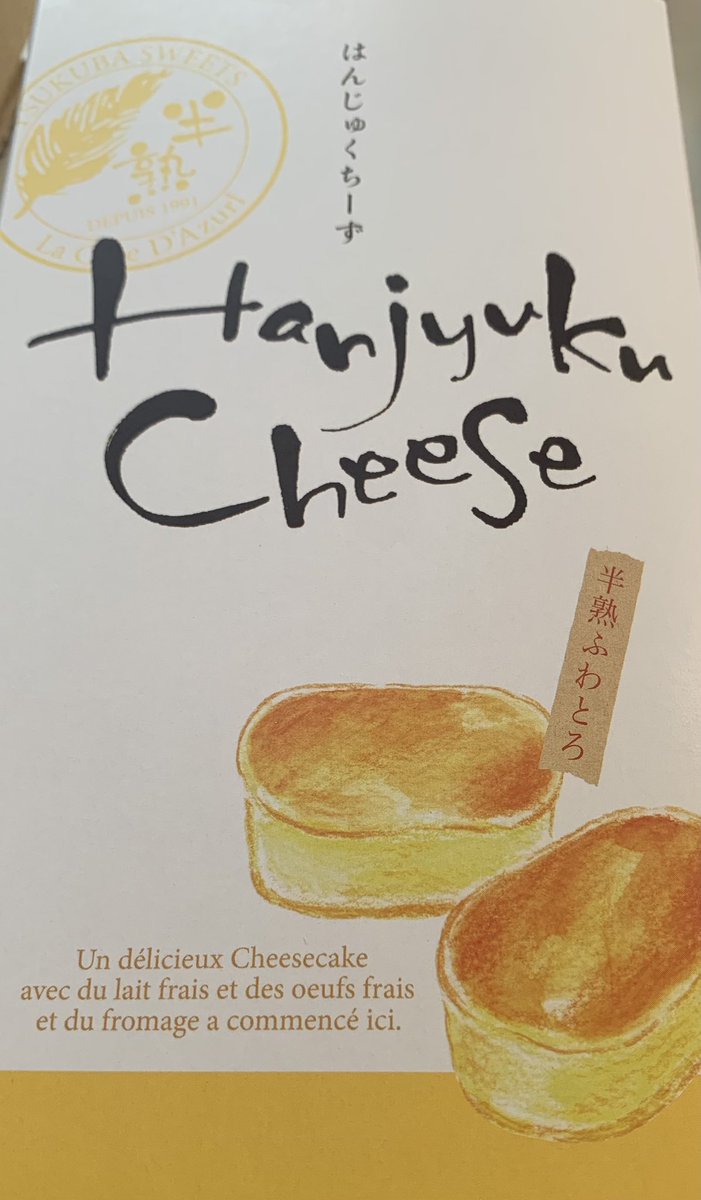 はんじゅくちーず
TSUKUBA SWEETS
半熟
DEPUIS 1991
D'Azur!
Hanjyuku
Cheese
半熟ふわとろ
Un délicieux Cheesecake
avec du lait frais et des oeufs frais
et du fromage a commencé ici.